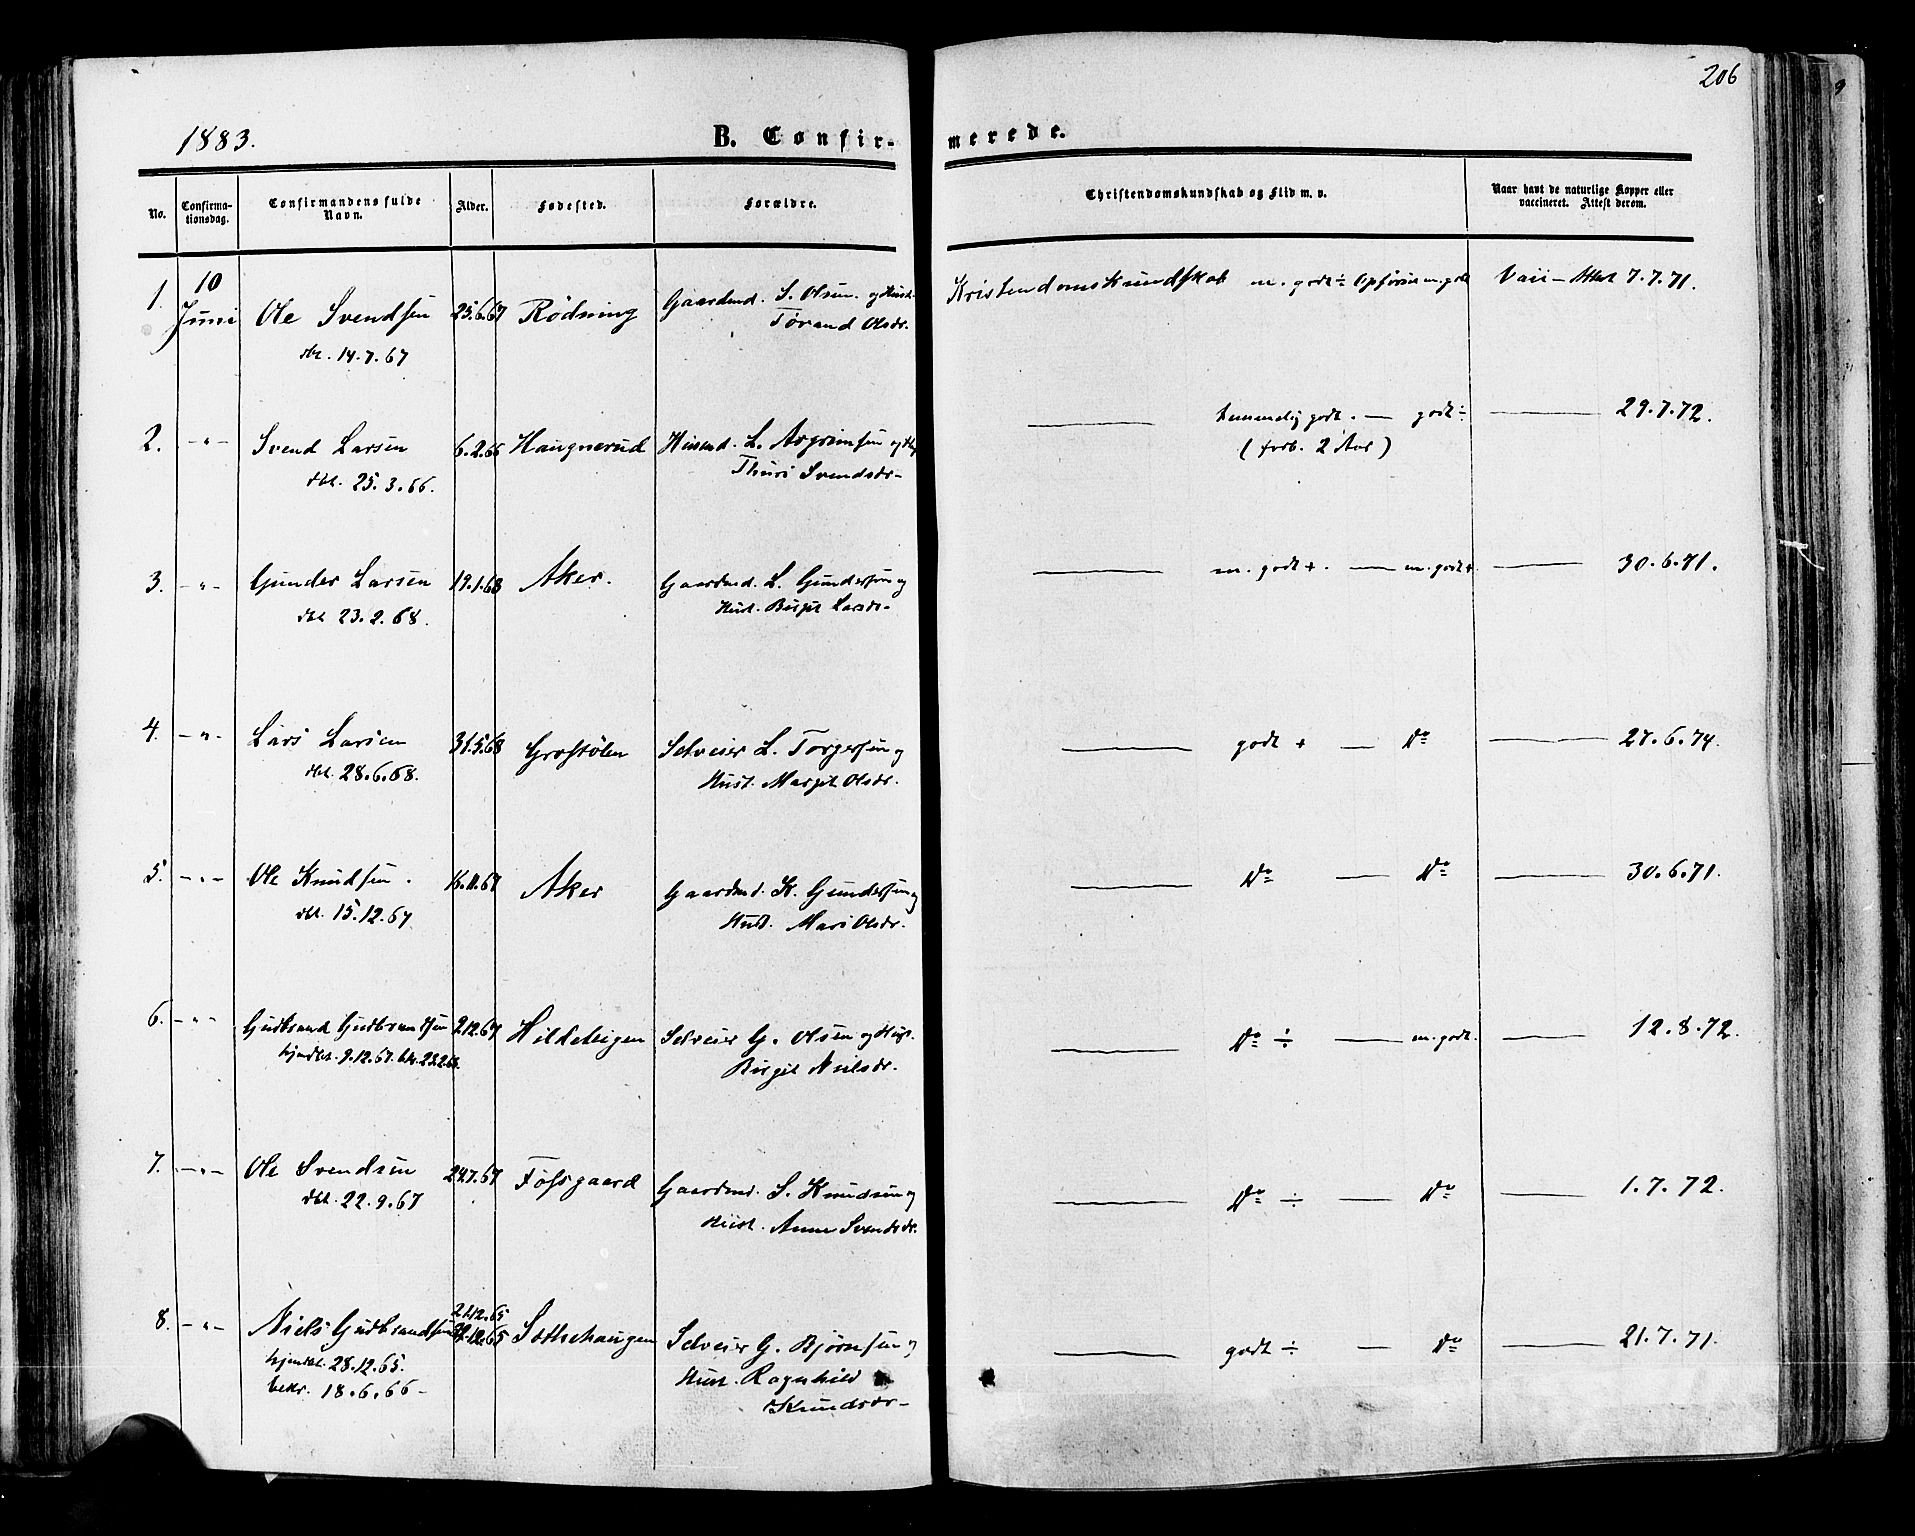 206
1883.
B. Confir-
merede.
No.
Confirma-
tionsdag.
Confirmandens fulde
Navn.
Alder.
Fødested.
Forældre.
Christendomskundskab og Flid m. v.
Naar havt de naturlige Kopper eller
vaccineret. Attest derom.
1. 10 Juni Ole Svendsen 25.6.67 Rödning Gaardmd. S. Olsen og Hust. Kristendomskundskab m. godt ÷ Opførsel m. godt Vaci – Attest 7.7.71.
dbt. 14.7.67 Torand Olsdr.
2. – " – Svend Larsen 6.2.66 Haugnerud Husmd. L. Asgrimsen og H. temmelig godt. — godt ÷ 29.7.72.
dbt. 25.3.66. Thuri Svendsdr – (forb. 2 Aar)
3. – " – Gunder Larsen 19.1.68 Aker. Gaardmd. L. Gundersen og m. godt +. — m. godt + 30.6.71.
dbt 23.2.68. Hust. Birgit Larsdr –
4. – " – Lars Larsen 31.5.68 Grostølen Selveier L. Torgersen og godt + — Do 27.6.74.
dbt. 28.6.68. Hust. Margit Olsdr.
5. – " – Ole Knudsen. 16.11.67 Aker Gaardmd. K. Gundersen og Do — Do 30.6.71.
dbt. 15.12.67. Hust. Mari Olsdr.
6. – " – Gudbrand Gudbrandsen 2.12.67 Hildeteigen Selveier G. Olsen og Hust. Do ÷ — m. godt. 12.8.72.
hjmdbt. 9.12.67. bkr. 23.2.68. Birgit Nielsdr.
7. – " – Ole Svendsen 24.7.67 Fosgaard Gaardmd. S. Knudsen og Do ÷ — Do 1.7.72.
dbt. 22.9.67 Hust. Anne Svendsdr.
8. – " – Niels Gudbrandsen 21.12.65 Sattehaugen Selveier G. Bjørnsen og godt ÷ — Do 21.7.71.
hjemdbt. 28.12.65. Hust. Ragnhild
bekr. 18.6.66 – Knudsdr –